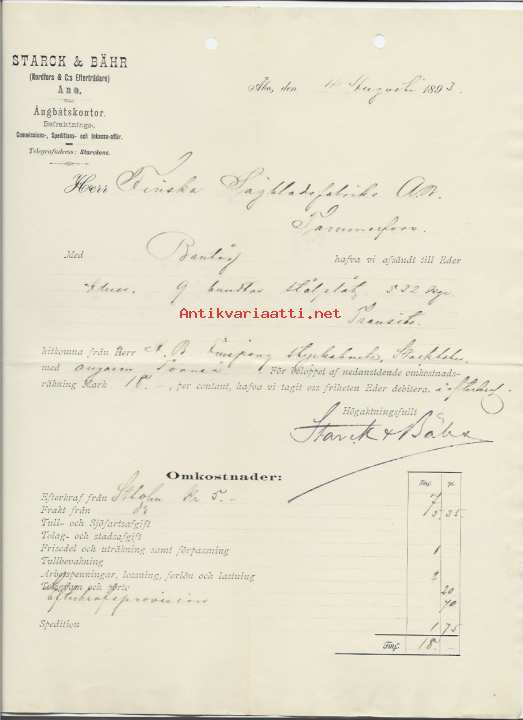 STARCK & BÄHR
(Nordfors & C:s Efterträdare)
ÅBO.
Ångbåtskontor.
Befraktnings-,
Commissions-, Speditions- och Inkasso-affär.
Telegrafadress: Starckone.
Åbo, den Augusti 1893.
Herr Finska Sågbladsfabriks A.B.
Tammerfors.
Med hafva vi afsändt till Eder
9 522 kgr
Transito.
hitkomna från Herr A. B. Stockholm
med ångaren För beloppet af nedanstående omkostnads-
räkning Mark 18.-, per contant, hafva vi tagit oss friheten Eder debitera.
Högaktningsfullt
Starck & Bähr
Antikvariaatti.net
Omkostnader:
Fmf. p.
Efterkraf från Sthlm Kr 5.- 7
Frakt från 5 35
Tull- och Sjöfartsafgift
Tolag- och stadsafgift
Frisedel och uträkning samt förpassning 1
Tullbevakning
Arbetspenningar, lossning, forlön och lastning 2
Telegram och porto 20
efterkrafsprovision 70
Spedition 1 75
Fmf. 18 -